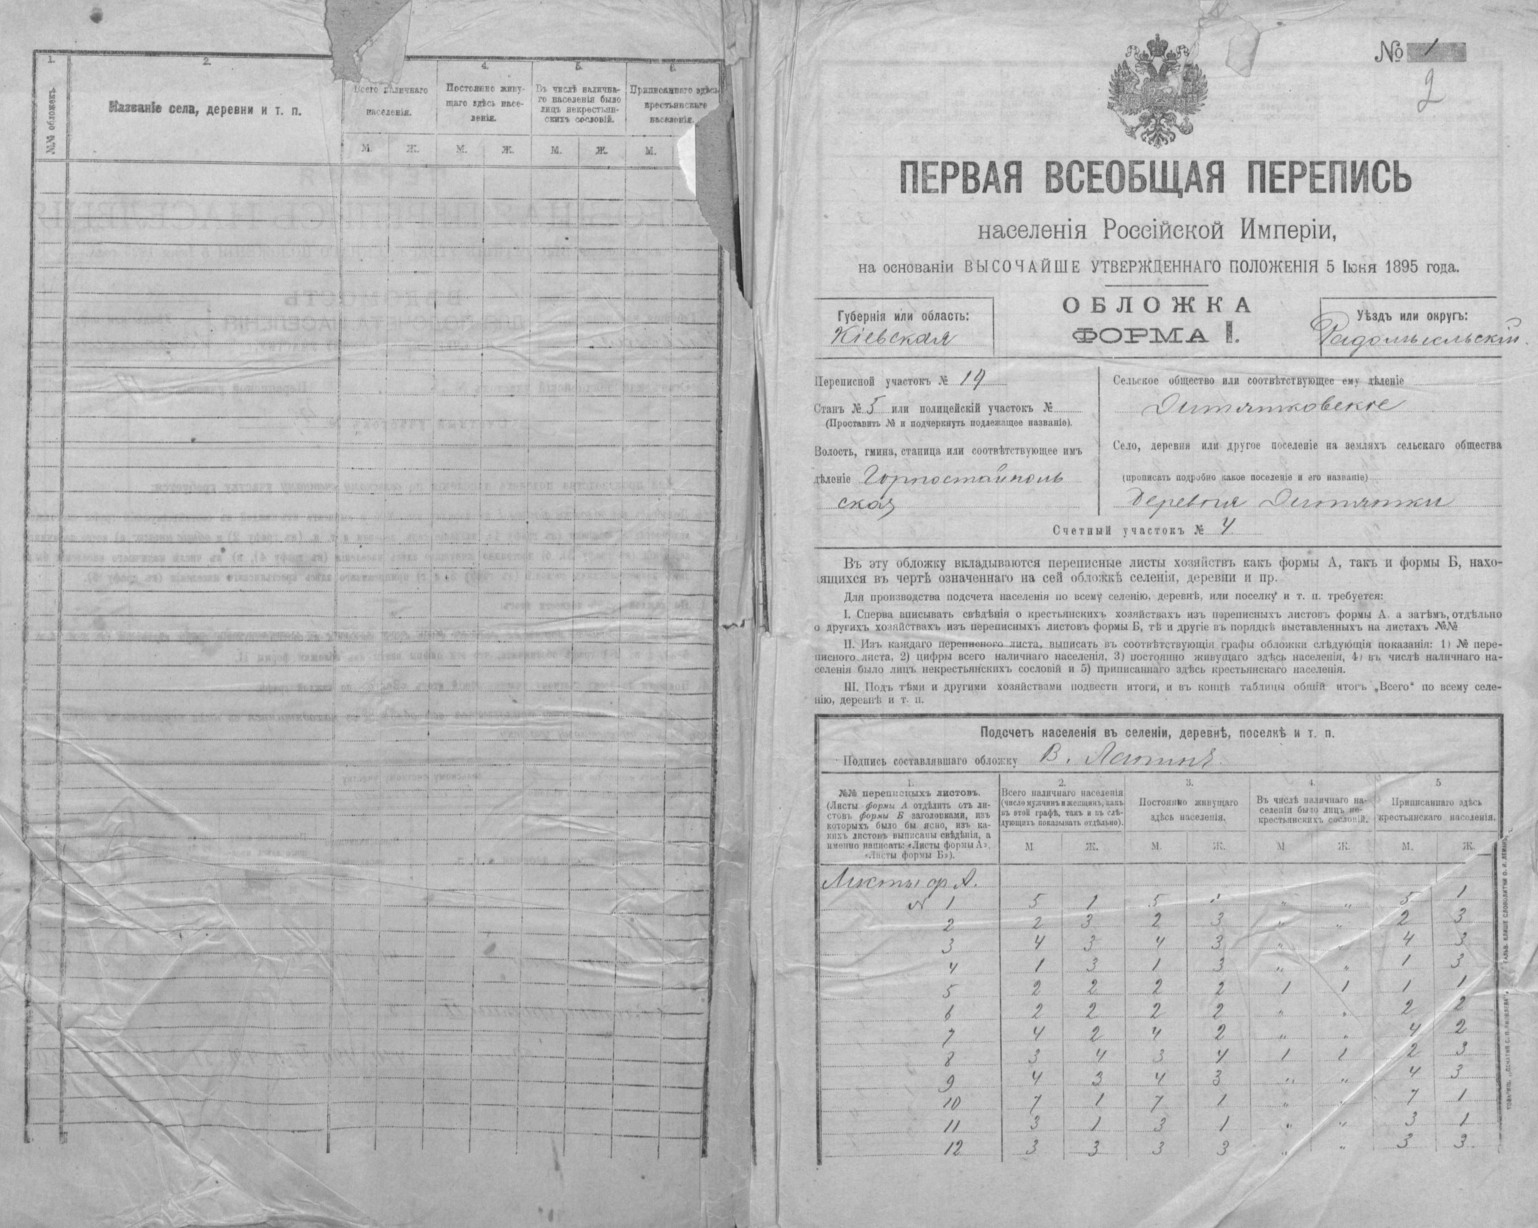 1.
2.
4.
5.
6.
№№ обложекъ.
Названіе села, деревни и т. п.
Всего наличнаго населенія.
Постоянно живущаго здѣсь населенія.
Въ числѣ наличнаго населенія было лицъ некрестьянскихъ сословій.
Приписаннаго здѣсь крестьянскаго населенія.
М. Ж. М. Ж. М. Ж. М.
№ 1
2
ПЕРВАЯ ВСЕОБЩАЯ ПЕРЕПИСЬ
населенія Россійской Имперіи,
на основаніи ВЫСОЧАЙШЕ УТВЕРЖДЕННАГО ПОЛОЖЕНІЯ 5 Іюня 1895 года.
Губернія или область:
Кіевская
ОБЛОЖКА
ФОРМА I.
Уѣздъ или округъ:
Радомысльскій.
Переписной участокъ № 19
Станъ № 5 или полицейскій участокъ №
(Проставить № и подчеркнуть подлежащее названіе).
Волость, гмина, станица или соотвѣтствующее имъ
дѣленіе Горностайполь
ская
Сельское общество или соотвѣтствующее ему дѣленіе
Дитятковское
Село, деревня или другое поселеніе на земляхъ сельскаго общества
(прописать подробно какое поселеніе и его названіе)
Деревня Дитятки
Счетный участокъ № 4
Въ эту обложку вкладываются переписные листы хозяйствъ какъ формы А, такъ и формы Б, нахо-
дящихся въ чертѣ означеннаго на сей обложкѣ селенія, деревни и пр.
Для производства подсчета населенія по всему селенію, деревнѣ, или поселку и т. п. требуется:
I. Сперва вписывать свѣдѣнія о крестьянскихъ хозяйствахъ изъ переписныхъ листовъ формы А. а затѣмъ, отдѣльно
о другихъ хозяйствахъ изъ переписныхъ листовъ формы Б, тѣ и другіе въ порядкѣ выставленныхъ на листахъ №№
II. Изъ каждаго переписного листа, выписать въ соотвѣтствующія графы обложки слѣдующія показанія: 1) № пере-
писного листа, 2) цифры всего наличнаго населенія, 3) постоянно живущаго здѣсь населенія, 4) въ числѣ наличнаго на-
селенія было лицъ некрестьянскихъ сословій и 5) приписаннаго здѣсь крестьянскаго населенія.
III. Подъ тѣми и другими хозяйствами подвести итоги, и въ концѣ таблицы общій итогъ „Всего“ по всему селе-
нію, деревнѣ и т. п.
Подсчетъ населенія въ селеніи, деревнѣ, поселкѣ и т. п.
Подпись составлявшаго обложку В.
1.
№№ переписныхъ листовъ.
(Листы формы А отдѣлить отъ ли-
стовъ формы Б заголовками, изъ
которыхъ было бы ясно, изъ ка-
кихъ листовъ выписаны свѣдѣнія, а
именно написать: «Листы формы А»,
«Листы формы Б»).
2.
Всего наличнаго населенія
(число мужчинъ и женщинъ, какъ
въ этой графѣ, такъ и въ слѣ-
дующихъ показывать отдѣльно).
3.
Постоянно живущаго
здѣсь населенія.
4.
Въ числѣ наличнаго на-
селенія было лицъ не-
крестьянскихъ сословій.
5
Приписаннаго здѣсь
крестьянскаго населенія.
М. Ж. М. Ж. М. Ж. М. Ж.
Листы ф А.
№ 1 5 1 5 „ „ 5 1
2 2 3 2 3 „ „ 2 3
3 4 3 4 3 „ „ 4 3
4 1 3 1 3 „ „ 1 3
5 2 2 2 2 1 1 1 1
6 2 2 2 2 „ „ 2 2
7 4 2 4 2 „ „ 4 2
8 3 4 3 4 1 1 2 3
9 4 3 4 3 „ „ 4 3
10 7 1 7 1 „ „ 7 1
11 3 1 3 1 „ „ 3 1
12 3 3 3 3 „ „ 3 3